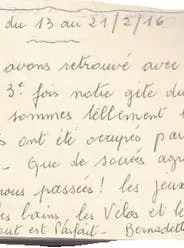 du 13 au 21/2/16
avons retrouvé avec
3e fois notre gite du
sommes tellement
s ont été occupés par
- Que de soirées agr
nous passées! les jeux
les bains, les Vélos et le
out est Parfait. Bernadette